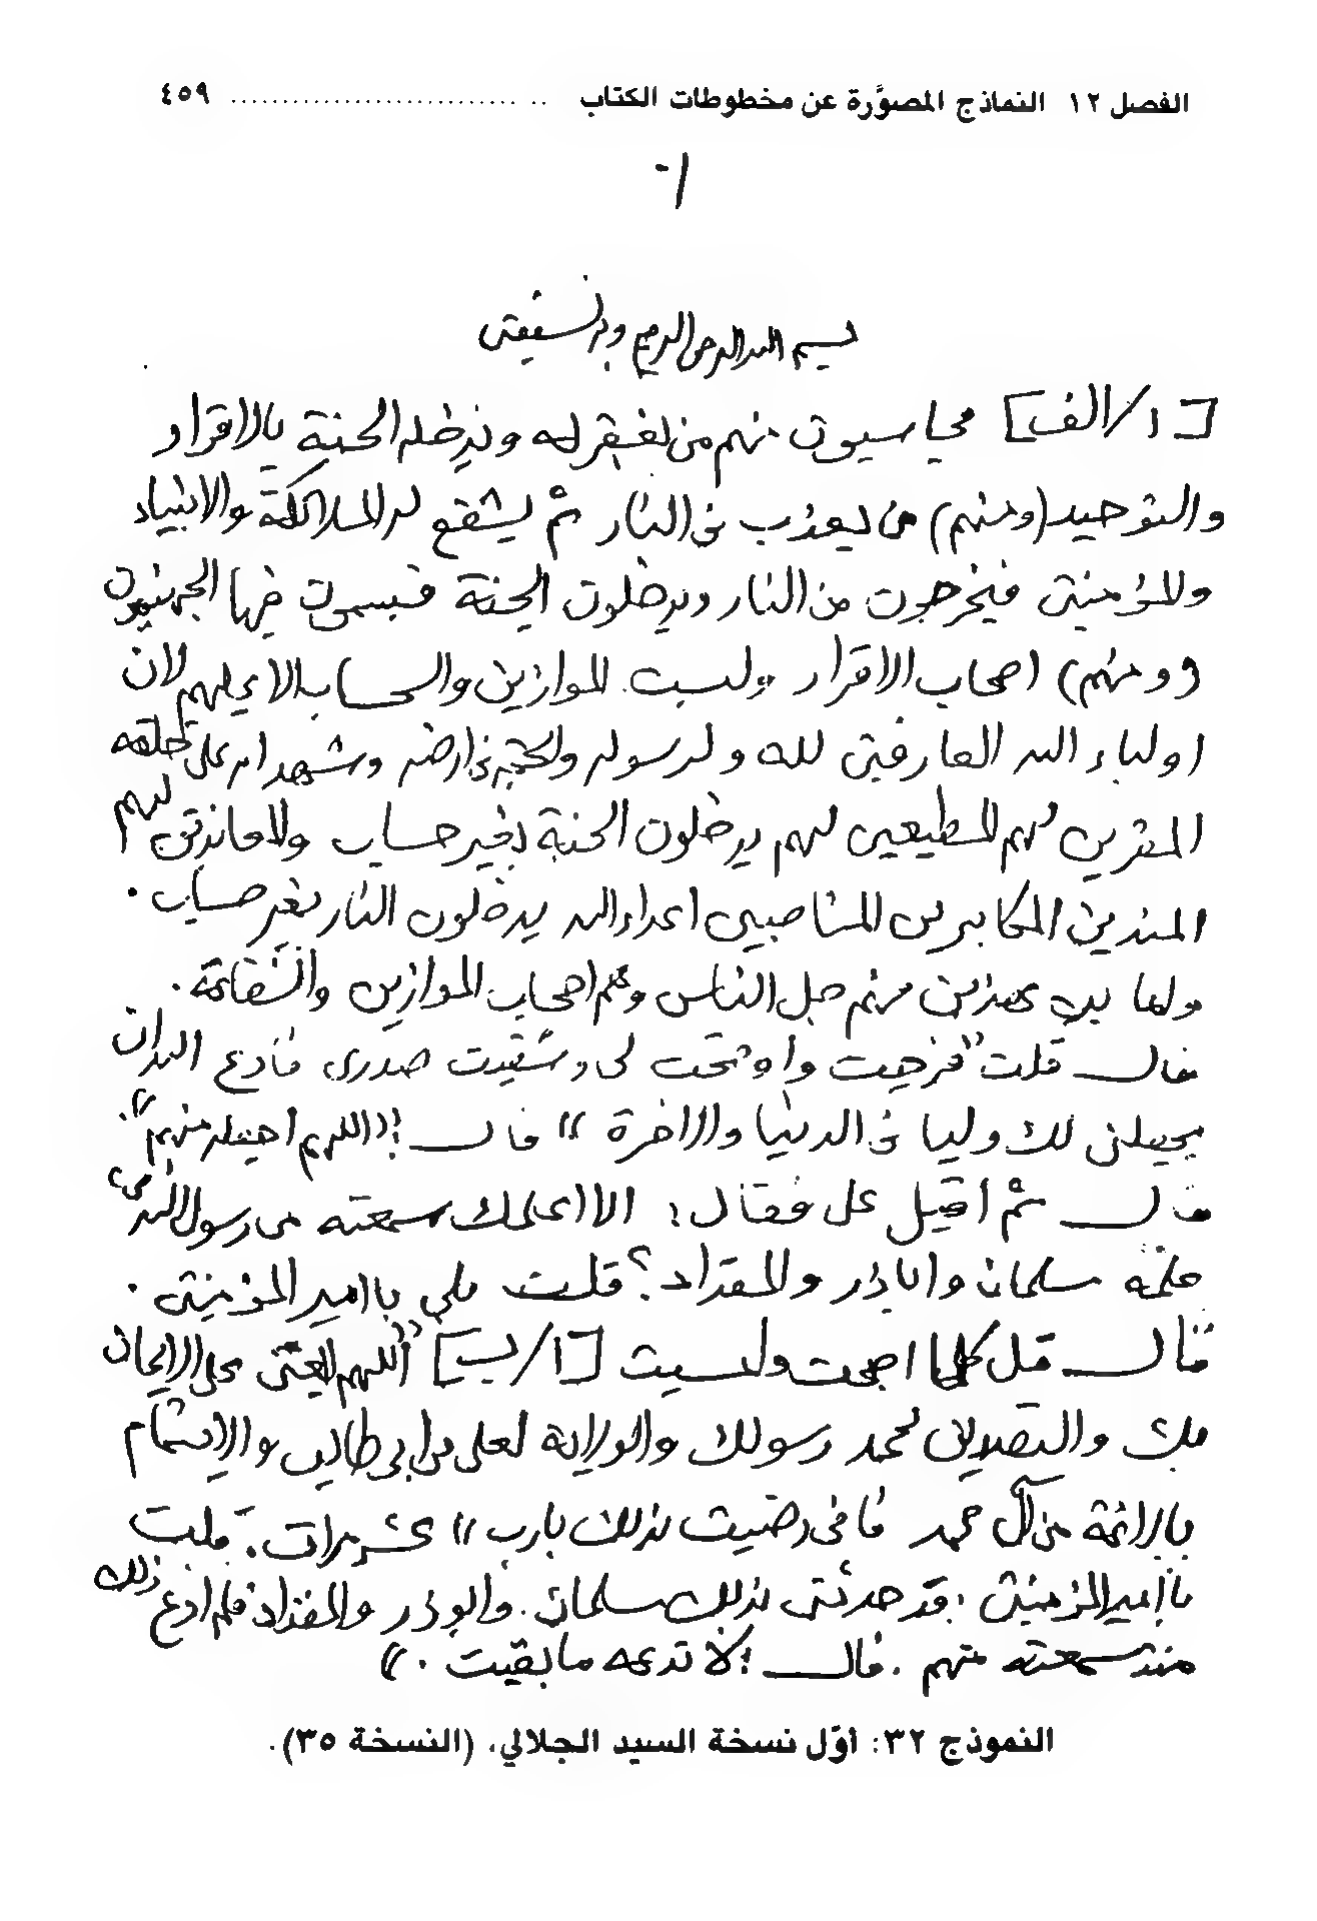 الفصل ١٢ النماذج المصوَّرة عن مخطوطات الكتاب ........................... ٤٥٩
١-
بسم الله الرحمن الرحيم وبه نستعين
[١/الف] محاسبون منهم من يغفر له ويدخله الجنة بالاقرار
والتوحيد (ومنهم) من يعذب في النار ثم يشفع له الملائكة والانبياء
والمؤمنين فيخرجون من النار ويدخلون الجنة فيسمون فيها الجهنميون
(ومنهم) اصحاب الاقرار وليست الموازين والحساب الا عليهم لان
اولياء الله العارفين لله ولرسوله والحجة في ارضه وشهداءه على خلقه
المقرين لهم المطيعين لهم يدخلون الجنة بغير حساب
المكابرين المناصبين اعداء الله يدخلون النار بغير حساب.
واما بين هذين منهم جل الناس وهم اصحاب الموازين والشفاعة.
قال قلت "فرجت واوضحت لي وشفيت صدري فادع الله ان
يجعلني لك وليا في الدنيا والآخرة" قال: "اللهم اجعله منهم".
قال ثم أقبل علي فقال: الا اعلمك سمعته من رسول الله
علمه سلمان وابا ذر والمقداد؟ قلت بلى يا امير المؤمنين.
قال قل كلما اصبحت وامسيت [١/ب] "اللهم ابعثني على الايمان
بك والتصديق لمحمد رسولك والولاية لعلي بن ابي طالب والايتمام
بالائمة من آل محمد فاني رضيت بذلك يارب" عشر مرات. قلت
يا أمير المؤمنين، قد حدثني بذلك سلمان وابوذر والمقداد فلم ادع ذلك
منذ سمعته منهم. قال: لا تدعه ما بقيت."
النموذج ٣٢: أوّل نسخة السيد الجلالي، (النسخة ٣٥).